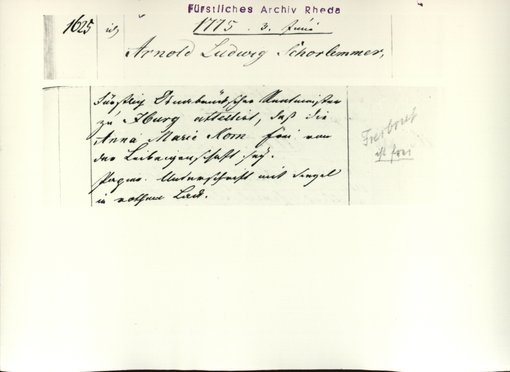 Fürstliches Archiv Rheda
1625 1775. 3. Juni
Arnold Ludwig Schorlemmer,
Fürstlich Osnabrückscher Rentmeister
zu Iburg attestirt, daß die
Anna Marie Kom frei von
der Leibeigenschaft sey.
Papier. Unterschrift mit Siegel
in rothem Lack.
Freibrief
ist frei